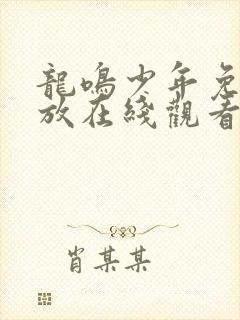 龍鳴少年免
放在綫觀看
肖某某